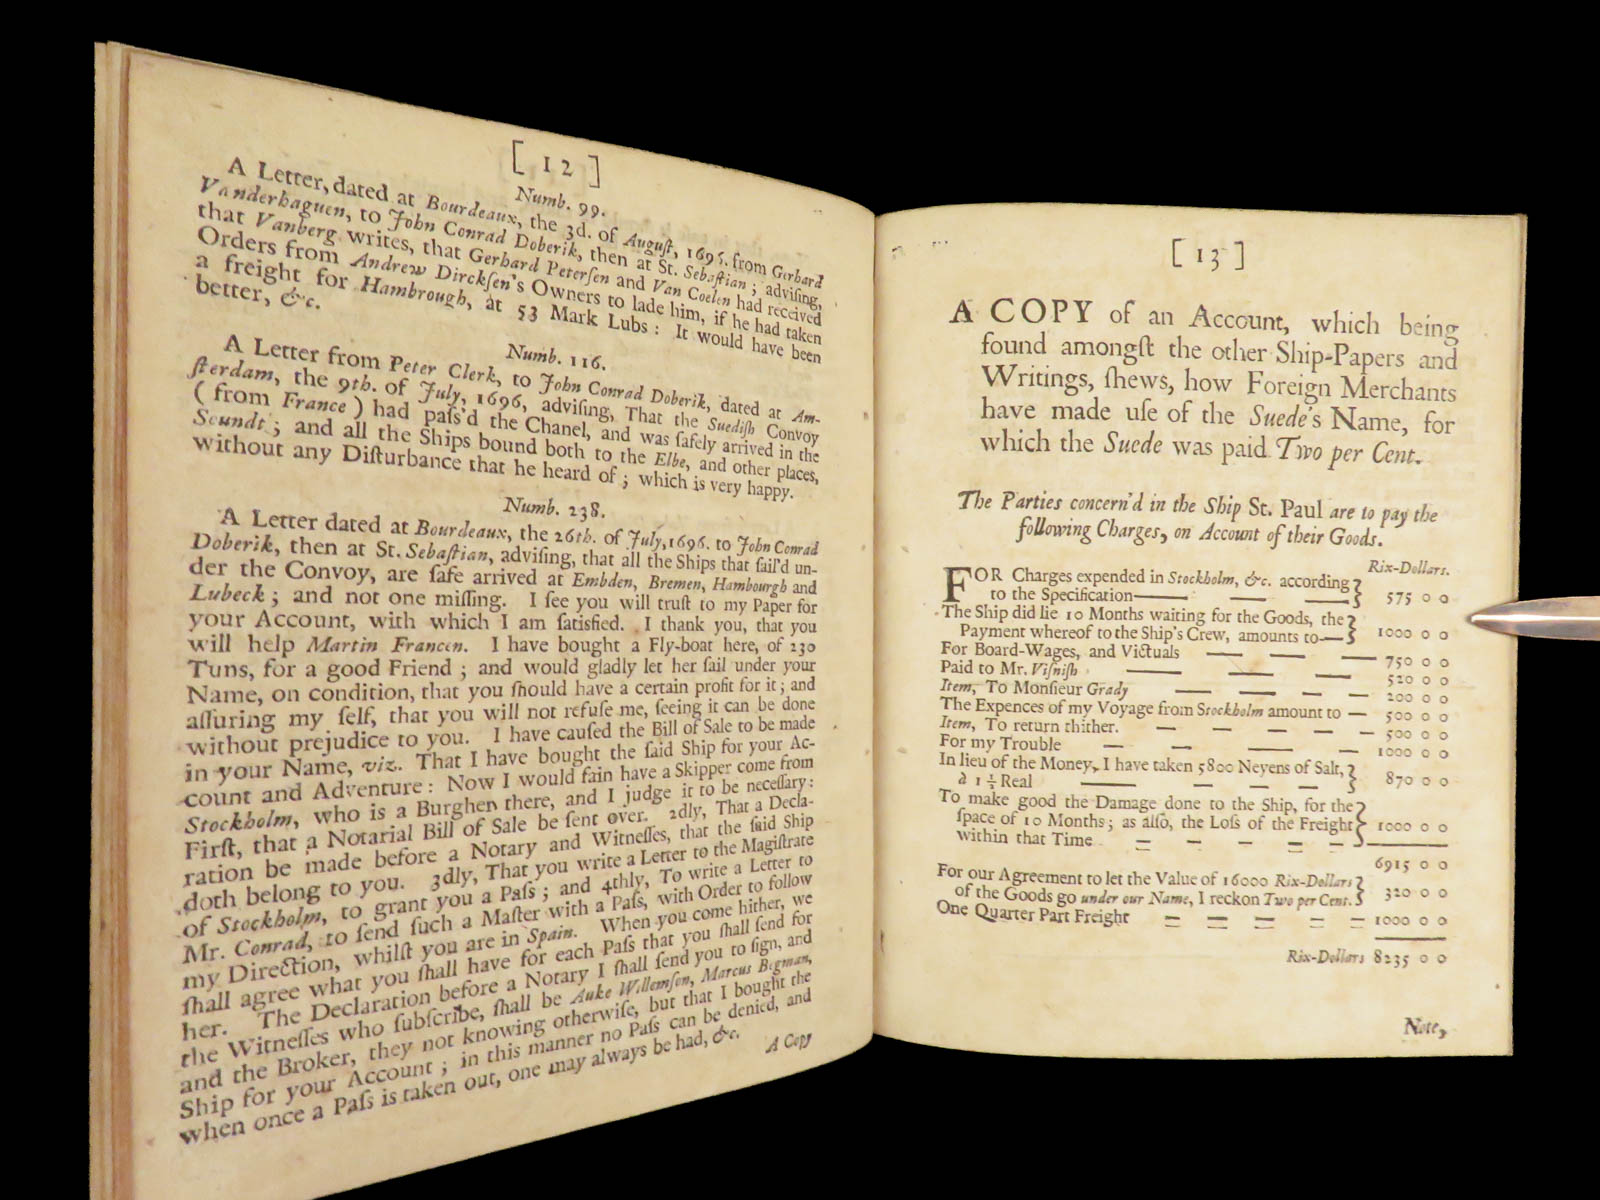 [ 12 ]
Numb. 99.
A Letter, dated at Bourdeaux, the 3d. of Auguſt, 1696. from Gerhard
Vanderhaguen, to John Conrad Doberik, then at St. Sebaſtian; adviſing,
that Vanberg writes, that Gerhard Peterſen and Van Coelen had received
Orders from Andrew Dirckſen's Owners to lade him, if he had taken
a freight for Hambrough, at 53 Mark Lubs: It would have been
better, &c.
Numb. 116.
A Letter from Peter Clerk, to John Conrad Doberik, dated at Am-
ſterdam, the 9th. of July, 1696, adviſing, That the Suediſh Convoy
( from France ) had paſs'd the Chanel, and was ſafely arrived in the
Soundt; and all the Ships bound both to the Elbe, and other places,
without any Diſturbance that he heard of; which is very happy.
Numb. 238.
A Letter dated at Bourdeaux, the 26th. of July, 1696. to John Conrad
Doberik, then at St. Sebaſtian, adviſing, that all the Ships that ſail'd un-
der the Convoy, are ſafe arrived at Embden, Bremen, Hambourgh and
Lubeck; and not one miſſing. I ſee you will truſt to my Paper for
your Account, with which I am ſatisfied. I thank you, that you
will help Martin Francen. I have bought a Fly-boat here, of 230
Tuns, for a good Friend; and would gladly let her ſail under your
Name, on condition, that you ſhould have a certain profit for it; and
aſſuring my ſelf, that you will not refuſe me, ſeeing it can be done
without prejudice to you. I have cauſed the Bill of Sale to be made
in your Name, viz. That I have bought the ſaid Ship for your Ac-
count and Adventure: Now I would fain have a Skipper come from
Stockholm, who is a Burgher there, and I judge it to be neceſſary:
Firſt, that a Notarial Bill of Sale be ſent over. 2dly, That a Decla-
ration be made before a Notary and Witneſſes, that the ſaid Ship
doth belong to you. 3dly, That you write a Letter to the Magiſtrate
of Stockholm, to grant you a Paſs; and 4thly, To write a Letter to
Mr. Conrad, to ſend ſuch a Maſter with a Paſs, with Order to follow
my Direction, whilſt you are in Spain. When you come hither, we
ſhall agree what you ſhall have for each Paſs that you ſhall ſend for
her. The Declaration before a Notary I ſhall ſend you to ſign, and
the Witneſſes who ſubſcribe, ſhall be Auke Willemſen, Marcus Begman,
and the Broker, they not knowing otherwiſe, but that I bought the
Ship for your Account; in this manner no Paſs can be denied, and
when once a Paſs is taken out, one may always be had, &c.
A Copy
[ 13 ]
A COPY of an Account, which being
found amongſt the other Ship-Papers and
Writings, ſhews, how Foreign Merchants
have made uſe of the Suede's Name, for
which the Suede was paid Two per Cent.
The Parties concern'd in the Ship St. Paul are to pay the
following Charges, on Account of their Goods.
Rix-Dollars.
FOR Charges expended in Stockholm, &c. according
to the Specification 575 0 0
The Ship did lie 10 Months waiting for the Goods, the
Payment whereof to the Ship's Crew, amounts to 1000 0 0
For Board-Wages, and Victuals 750 0 0
Paid to Mr. Viſniſh 520 0 0
Item, To Monſieur Grady 200 0 0
The Expences of my Voyage from Stockholm amount to 500 0 0
Item, To return thither. 500 0 0
For my Trouble 1000 0 0
In lieu of the Money, I have taken 5800 Neyens of Salt,
à 1 1/2 Real 870 0 0
To make good the Damage done to the Ship, for the
ſpace of 10 Months; as alſo, the Loſs of the Freight
within that Time 1000 0 0
6915 0 0
For our Agreement to let the Value of 16000 Rix-Dollars
of the Goods go under our Name, I reckon Two per Cent. 320 0 0
One Quarter Part Freight 1000 0 0
Rix-Dollars 8235 0 0
Note,